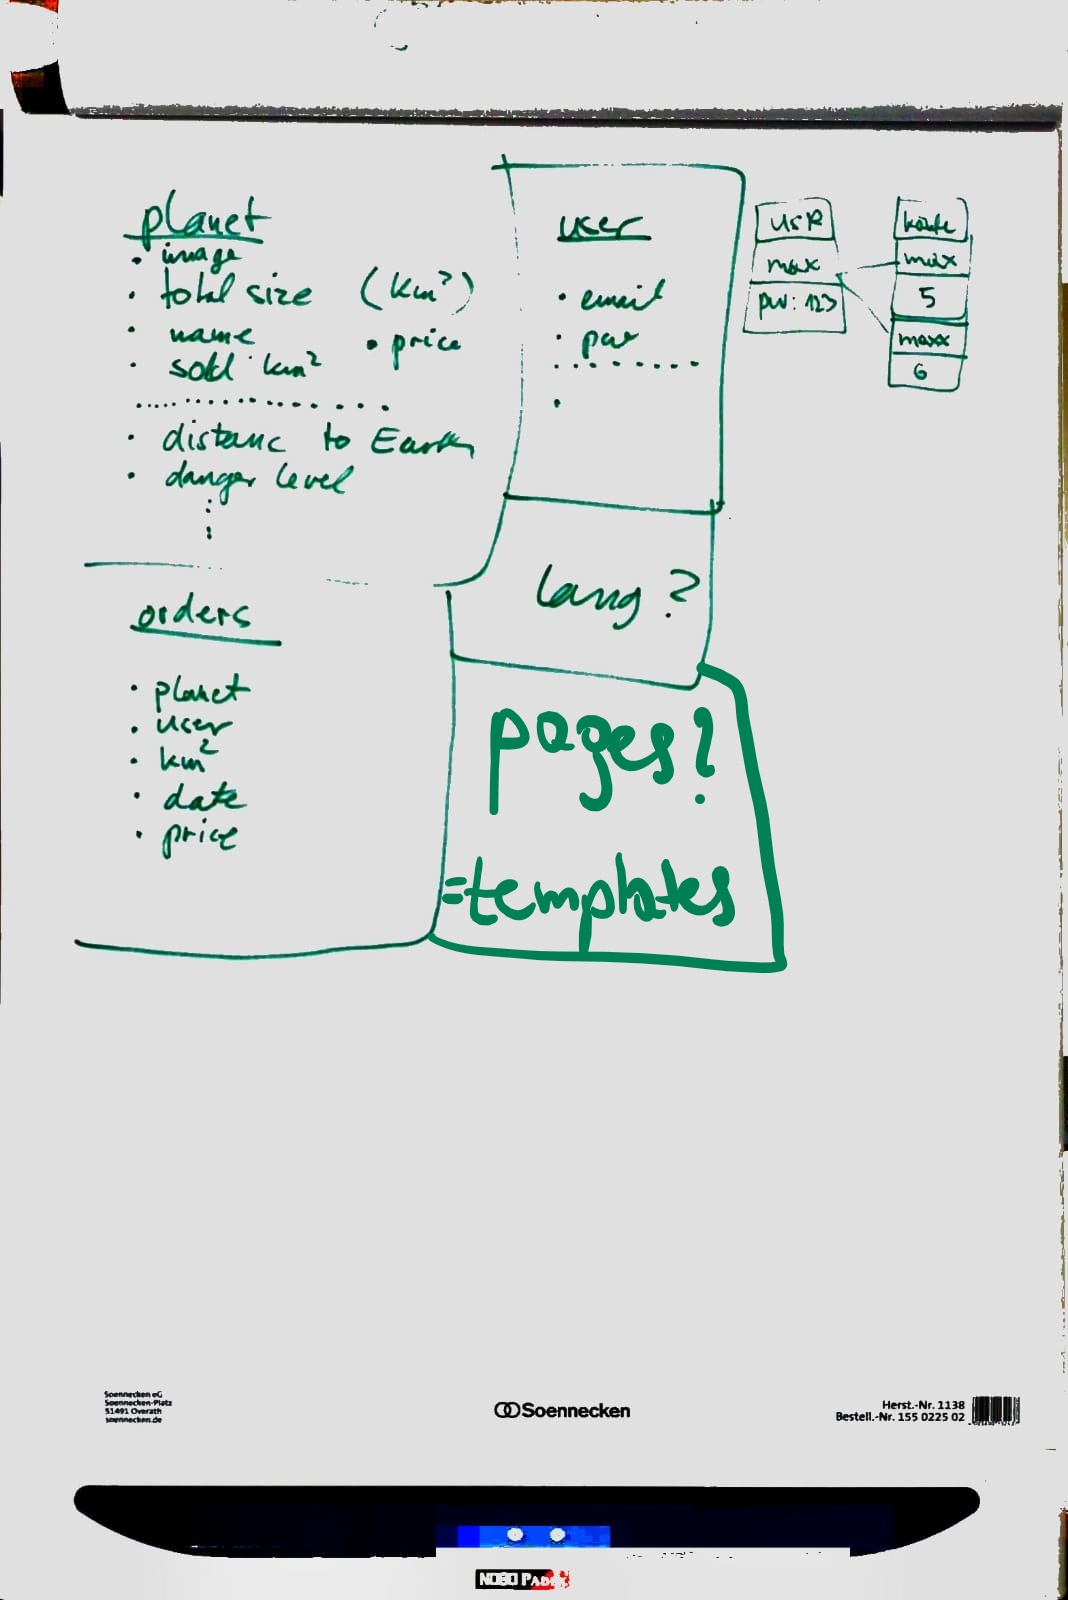 planet
• image
• total size (km²)
• name • price
• sold km²
• distanc to Earth
• danger level
user
• email
• pw
usr
max
pw: 123
max
5
maxx
6
lang?
orders
• planet
• user
• km²
• date
• price
pages?
=templates
Soennecken eG
Soennecken-Platz
51491 Overath
soennecken.de
Soennecken
Herst.-Nr. 1138
Bestell.-Nr. 155 0225 02